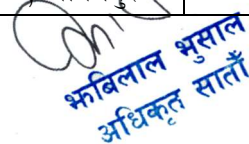 भबिलाल भुसाल
अधिकृत सातौँ